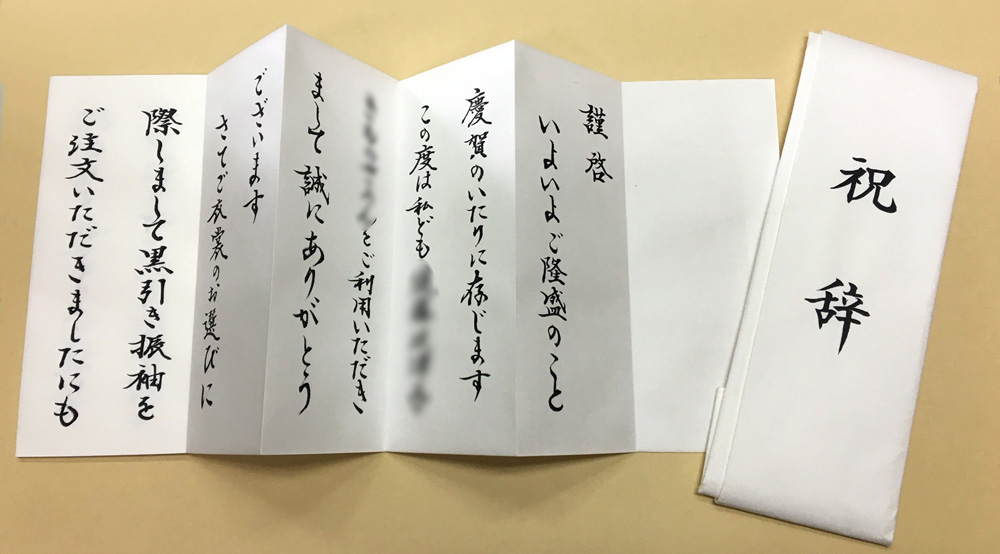 祝辞
謹啓
いよいよご隆盛のこと
慶賀のいたりに存じます
この度は私ども
をご利用いただき
まして誠にありがとう
ございます
さてご衣裳のお選びに
際しまして黒引き振袖を
ご注文いただきましたにも